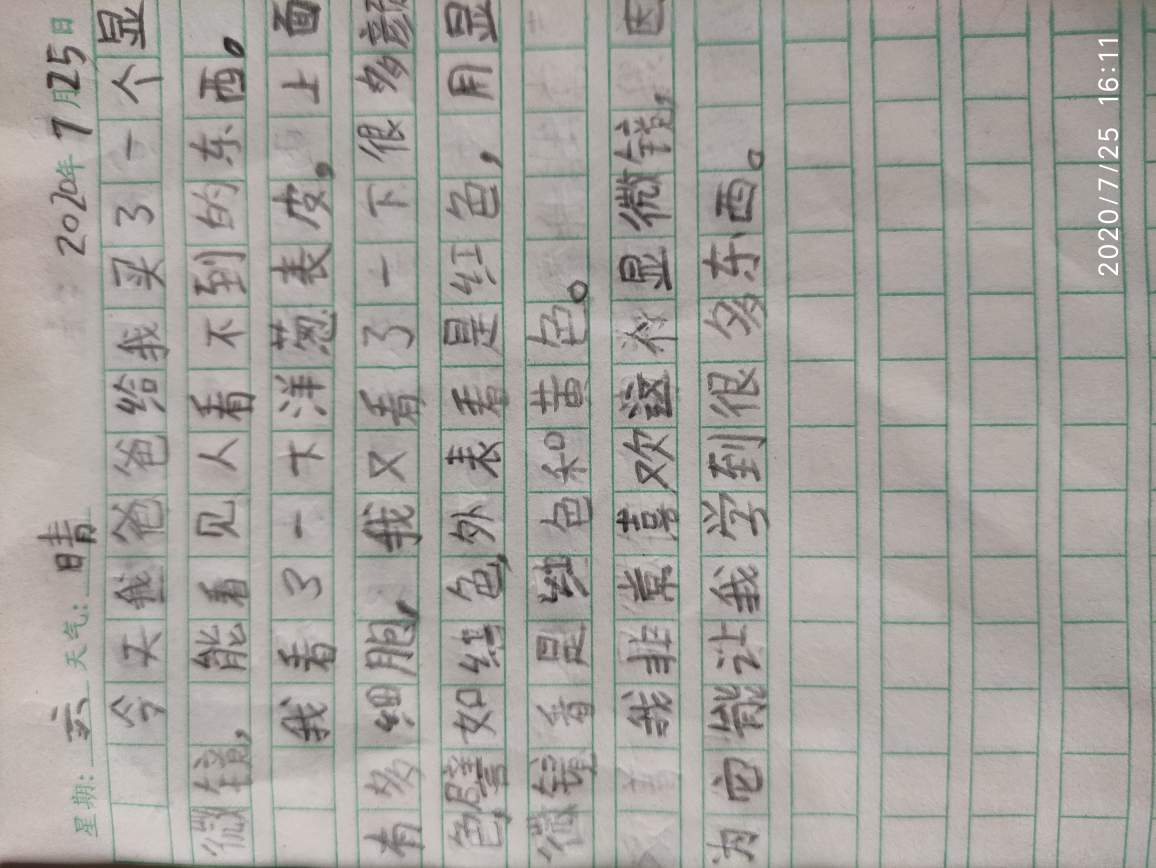 星期: 天气: 晴 2020年7月25日
今天我爸爸给我买了一个显
微镜,能看见人看不到的东西。
我看了一下洋葱表皮,上面
有多细胞,我又看了一下很多颜
色,譬如红色,外表看是红色,用显
微镜看是红色和黄色。
我非常喜欢这个显微镜,因
为它能让我学到很多东西。
2020/7/25 16:11